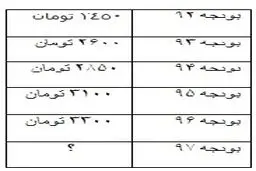 بودجه ۹۲ ۲۴۵۰ تومان
بودجه ۹۳ ۲۶۰۰ تومان
بودجه ۹۴ ۲۸۵۰ تومان
بودجه ۹۵ ۳۱۰۰ تومان
بودجه ۹۶ ۳۳۰۰ تومان
بودجه ۹۷ ؟